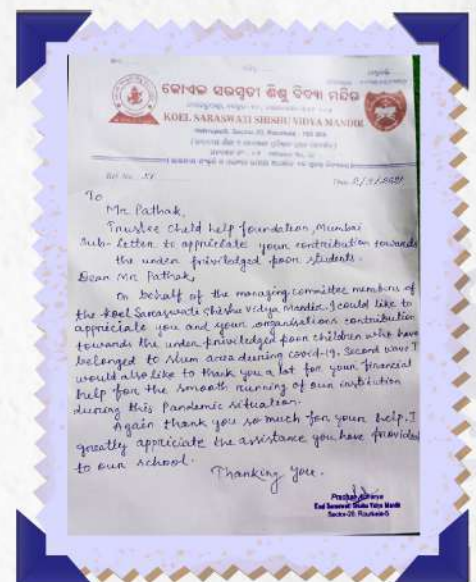 କୋଏଲ ସରସ୍ୱତୀ ଶିଶୁ ବିଦ୍ୟା ମନ୍ଦିର
KOEL SARASWATI SHISHU VIDYA MANDIR
Sector-20, Rourkela
To
Mr. Pathak,
Trustee Child help foundation, Mumbai
Sub- Letter to appriciate your contribution towards
the under priviledged poor students.
Dear Mr. Pathak,
On behalf of the managing committee members of
the Koel Saraswati Shishu Vidya Mandir I could like to
appreciate you and your organisations contribution
towards the under priviledged poor children who have
belonged to slum area during covid-19. Second wave I
would also like to thank you a lot for your financial
help for the smooth running of our institution
during this Pandemic situation.
Again thank you so much for your help. I
greatly appriciate the assistance you have provided
to our school.
Thanking you.
Koel Saraswati Shishu Vidya Mandir
Sector-20, Rourkela-5